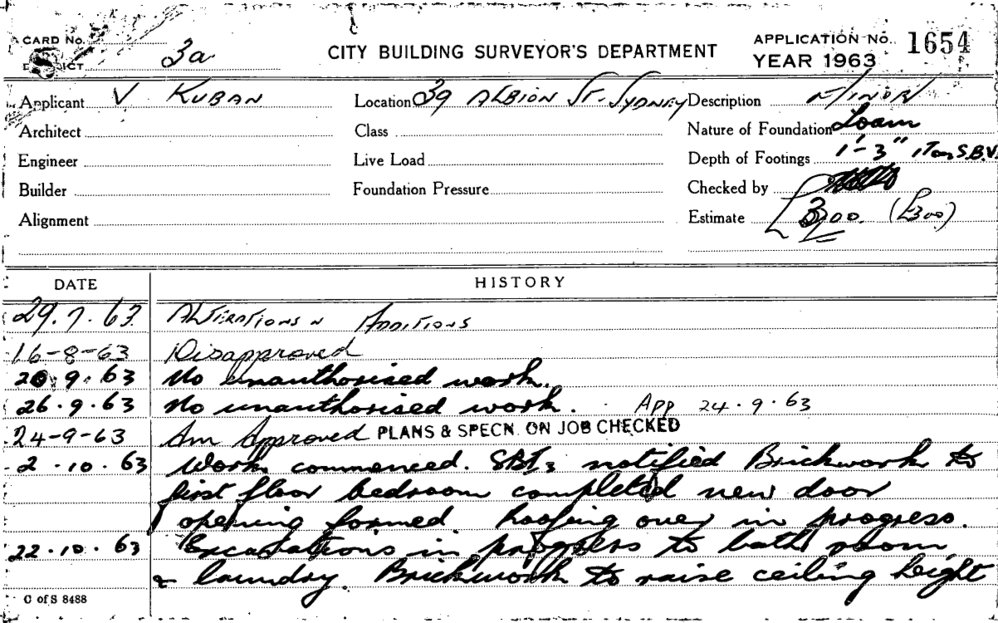 CARD No.
CITY BUILDING SURVEYOR'S DEPARTMENT
APPLICATION No. 1654
DISTRICT 3a
YEAR 1963
Applicant V. KUBAN
Location 39 ALBION ST. SYDNEY
Description MINOR
Architect
Class
Nature of Foundation Loam
Engineer
Live Load
Depth of Footings 1'-3" 1 Ton S.B.V.
Builder
Foundation Pressure
Checked by
Alignment
Estimate £300. (£300)
DATE HISTORY
29.7.63 ALTERATIONS N ADDITIONS
16-8-63 Disapproved
20.9.63 No unauthorised work.
26.9.63 No unauthorised work. App 24.9.63
24-9-63 Am Approved PLANS & SPECN. ON JOB CHECKED
2.10.63 Work commenced. notified Brickwork to
first floor bedroom completed new door
opening formed. Roofing over in progress.
22.10.63 Excavations in progress to bath room
& laundry. Brickwork to raise ceiling height
C of S 8488